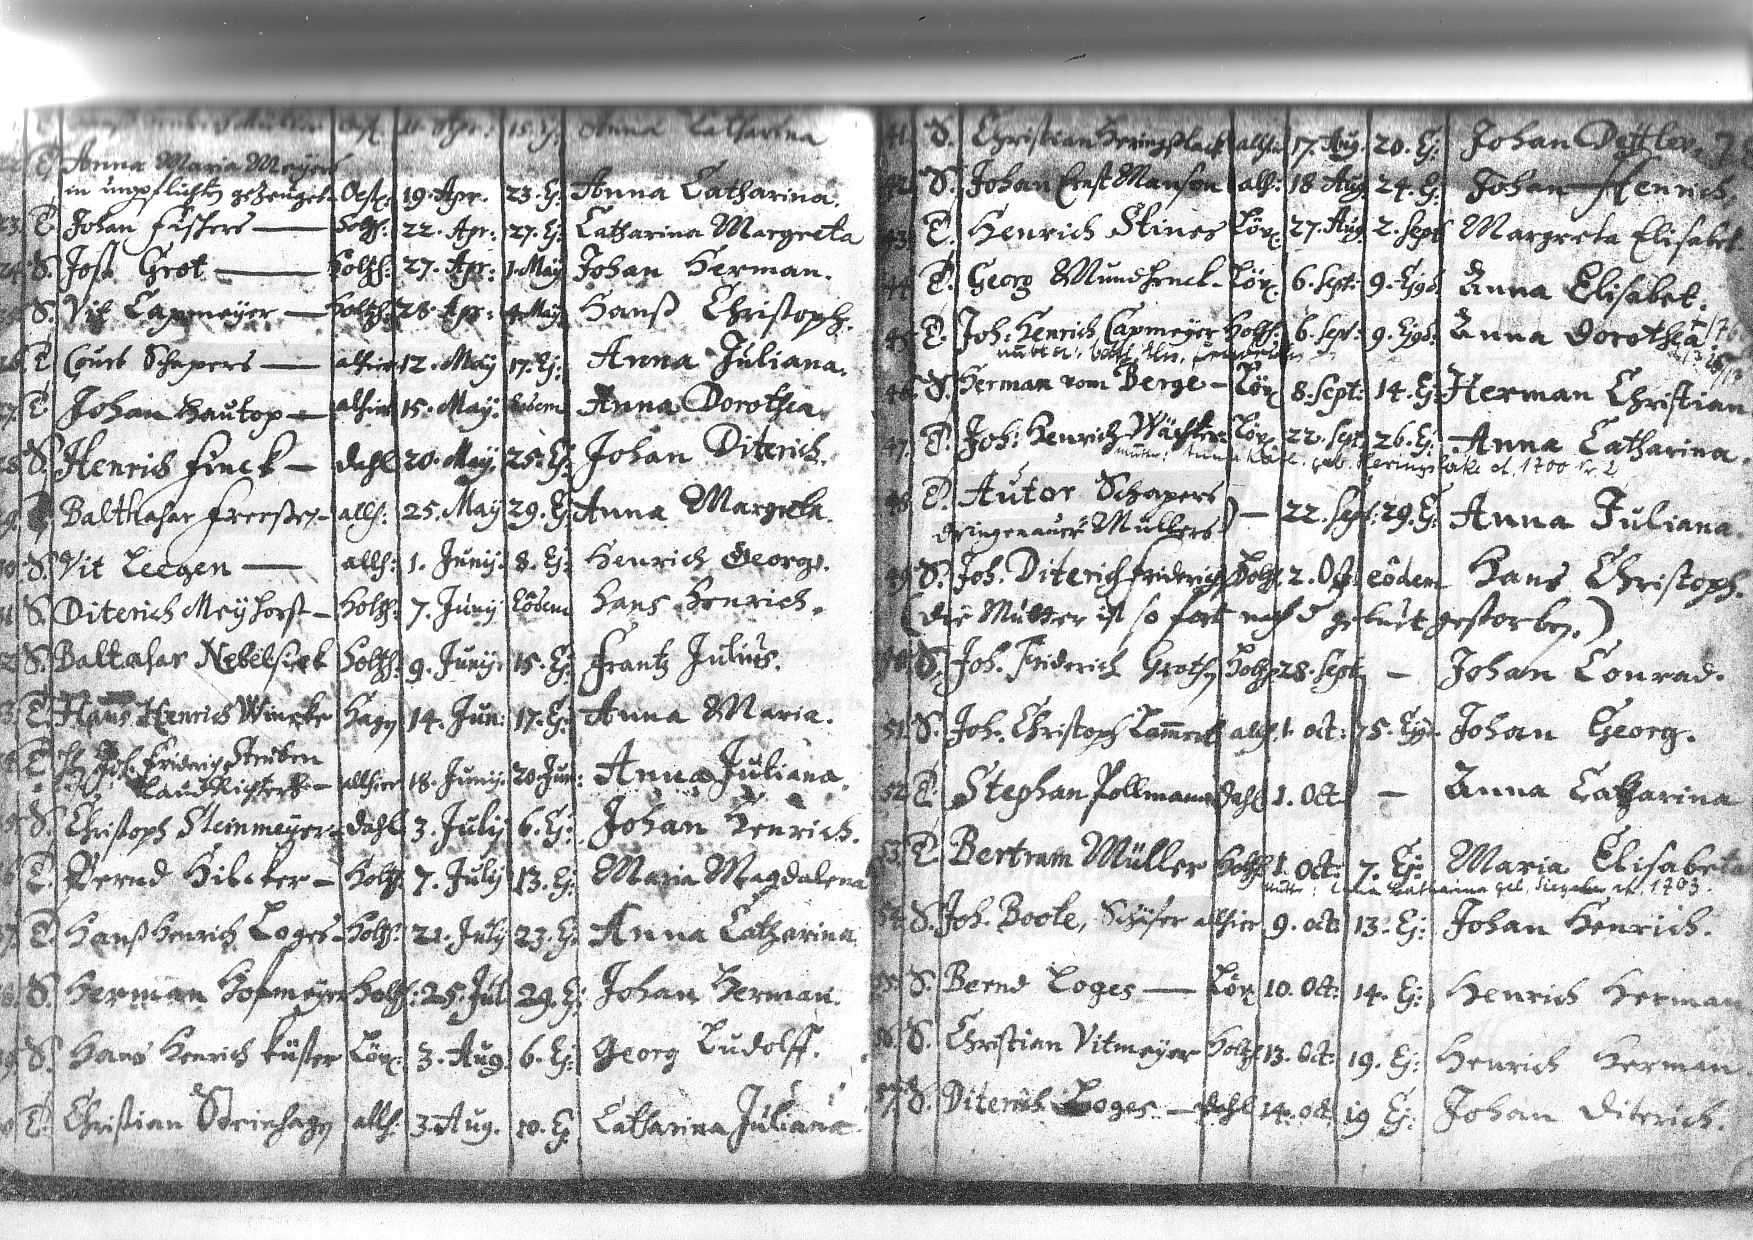 Anna Catharina
Anna Maria Meyers
in unpflichten gezeuget Oest: 19. Apr. 23. Ej: Anna Catharina.
23. T. Johan Fischers — Holtzh: 22. Apr: 27. Ej: Catharina Margreta
24. S. Jost Grot — Holtzh: 27. Apr: 1. May Johan Herman.
S. Vit Capmeyer — Holtzh: 28. Apr: May Hanß Christoph.
26. T. Curt Schapers — alhier 12. May 17. Ej: Anna Juliana.
27. T. Johan Hautop — alhier 15. May. Eodem Anna Dorothea
28. S. Henrich Finck — Dahl 20. May. 25. Ej: Johan Diterich.
29. Balthasar — allh: 25. May 29. Ej: Anna Margreta
30. S. Vit Leegen — allh: 1. Juny. 8. Ej: Henrich Georg.
31. S. Diterich Meyhorst — Holtzh: 7. Juny Eodem Hans Henrich.
32. S. Baltasar Nebelsiek Holtzh: 9. Juny. 15. Ej: Frantz Julius.
33. T. Hans Henrich Wincke Hagen 14. Jun: 17. Ej: Anna Maria.
T. H. Joh. Friderich Struben
Land Richters — allhier 18. Juny. 20. Jun: Anna Juliana.
S. Christoph Steinmeyer — Dahl 3. July 6. Ej: Johan Henrich.
T. Bernd Hilcker — Holtzh: 7. July 13. Ej: Maria Magdalena
T. Hanß Henrich Loges — Holtzh: 21. July 23. Ej: Anna Catharina.
S. Herman Hopmeyer Holtzh: 25. Jul 29. Ej: Johan Herman.
S. Hans Henrich Küster Lörx: 3. Aug. 6. Ej: Georg Ludolff.
T. Christian Steinhagen allh: 3. Aug. 10. Ej: Catharina Juliana
41. S. Christian Heringßlack allhie 17. Aug. 20. Ej: Johan Dettlev.
42. S. Johan Ernst Manson allh: 18 Aug 24. Ej: Johan Henrich.
43. T. Henrich Stines Lörx. 27. Aug. 2. Sept Margreta Elisabet
44. T. Georg Mundhenck — Lörx. 6. Sept: 9. Ejsd. Anna Elisabet.
45. T. Joh: Henrich Capmeyer Holtzh: 6. Sept: 9. Ejsd: Anna Dorothea.
46. S. Herman vom Berge — Lörx 8. Sept: 14. Ej: Herman Christian
47. T. Joh: Henrich Wächters Lörx. 22. Sept 26. Ej: Anna Catharina.
Mutter: Anna geb. Heringslake cf. 1700 Nr 2
48. T. Autor Schapers
Müllers — 22. Sept: 29. Ej: Anna Juliana.
49. S. Joh. Diterich Friderich Holtzh. 2. Oct. eodem Hans Christoph.
(die Mutter ist so fort nach d gebuit gestorben.)
50. S. Joh. Friderich Groten Holtzh 28. Sept — Johan Conrad.
51. S. Joh. Christoph Lammert allh. 1. oct: 5. Ejd. Johan Georg.
52. T. Stephan Pollmann Dahl 1. Oct — Anna Catharina
53. T. Bertram Müller Holtzh 1. Oct: 7. Ej: Maria Elisabeta
Mutter: Anna Catharina geb. cf. 1703.
54. S. Joh. Boote, Schäfer alhier 9. oct. 13. Ej: Johan Henrich.
55. S. Bernd Loges — Lörx 10. Oct: 14. Ej: Henrich Herman
56. S. Christian Vitmeyer Holtzh 13. Oct: 19. Ej: Henrich Herman.
57. S. Diterich Loges — Dahl 14. oct. 19 Ej: Johan Diterich.